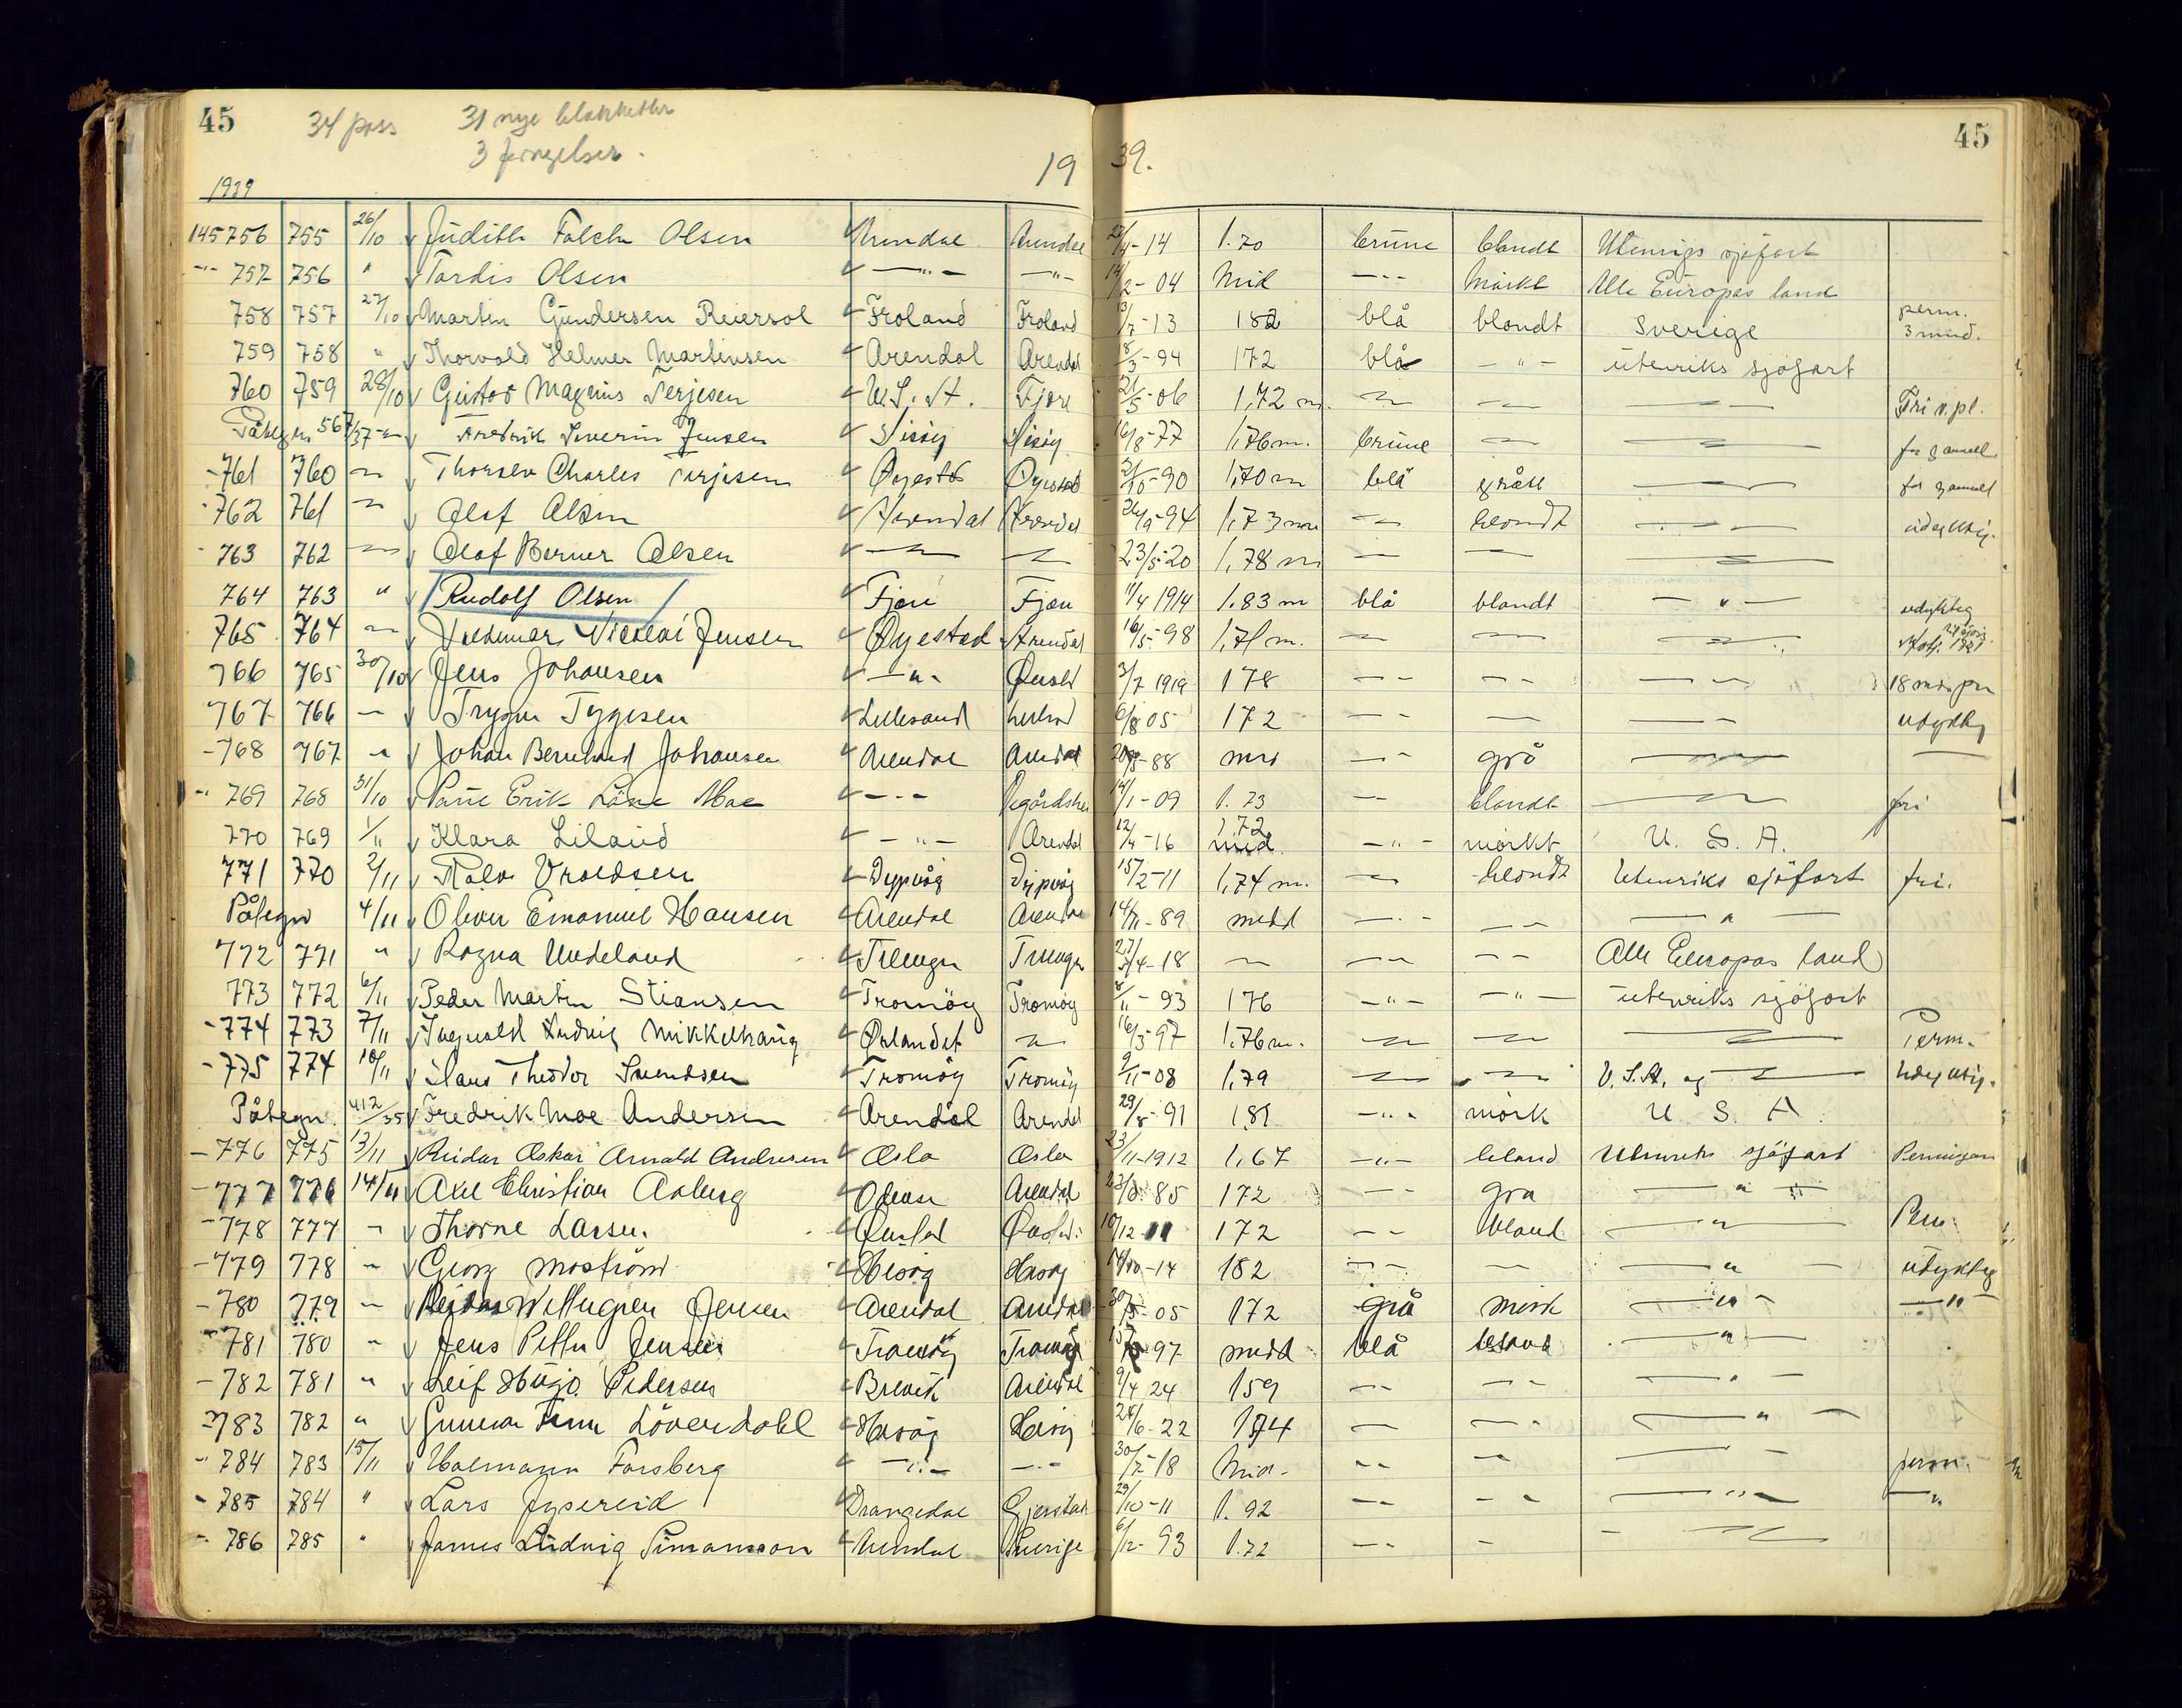 45 34 pass 31 nye blanketter 45
3 fornyelser.
1939 19 39.
145756 755 26/10 Judith Falch Olsen Arendal Arendal 22/4-14 1.70 brune blondt Utenrigs sjöfart
-"- 757 756 " Tordis Olsen —"— —"— 14/2-04 Mid —"— Mörkt Alle Europas land
758 757 27/10 Martin Gundersen Reiersol Froland Froland 13/7-13 182 blå blondt Sverige perm. 3 mnd.
759 758 " Thorvald Helmer Martinsen Arendal Arendal 18/3-94 172 blå —"— utenriks sjöfart
760 759 28/10 Gustav Magnus Terjesen U.S.A. Fjære 21/5-06 1,72 m. —"— —"— —"— Fri v.pl.
Påtegn 567/37 -"- Fredrik Severin Jensen Hisöy Hisöy 16/8-77 1,76 m. brune —"— —"— for gammel
-761 760 —"— Thorlev Charles Terjesen Øyestad Øyestad 21/10-90 1,70 m blå grått —"— for gammel
-762 761 —"— Olaf Olsen Arendal Arendal 26/9-94 1,73 m —"— blondt —"— udyktig.
-763 762 —"— Olaf Berner Olsen —"— —"— 23/5-20 1,78 m — —"— —"—
764 763 " Rudolf Olsen Fjære Fjære 11/4 1914 1.83 m blå blondt —"— udyktig
765 764 —"— Valdemar Nicolai Jensen Øyestad Arendal 16/5-98 1,71 m. —"— —"— —"—
766 765 30/10 Jens Johansen —"— Øiestad 3/7 1919 178 —"— —"— —"— 18 mnd. per
767 766 — Trygve Tygesen Lillesand Lillesand 6/8 05 172 —"— —"— —"— udyktig
-768 767 " Johan Bernhard Johansen Arendal Arendal 20/8-88 mid —"— grå —"— —
-"- 769 768 31/10 Erik Låne Moe —"— Vegårdshei 14/1-09 1.73 —"— blondt —"— fri
770 769 1/11 Klara Liland —"— Arendal 12/4-16 1,72 mid. —"— mörkt U. S. A.
771 770 2/11 Rolv Vroldsen Dypvåg Dypvåg 15/2-11 1,74 m. —"— blondt Utenriks sjöfart fri.
Påtegn 4/11 Oliver Emanuel Hansen Arendal Arendal 14/11-89 midd —"— —"— —"—
772 771 " Ragna Undeland Treungen Treungen 27/4-18 —"— —"— —"— Alle Europas land
773 772 6/11 Peder Martin Stiansen Tromöy Tromöy 8/11-93 176 —"— —"— utenriks sjöfart
-774 773 7/11 Ingvald Ludvig Mikkelhaug Ørlandet —"— 16/3-97 1,76 m. —"— —"— —"— Perm.
-775 774 10/11 Hans Theodor Svendsen Tromöy Tromöy 9/11-08 1,79 —"— —"— U.S.A. og —"— Udyktig.
Påtegn. 412/35 Fredrik Moe Andersen Arendal Arendal 29/8-91 1,81 —"— mörk U S A
-776 775 13/11 Reidar Oskar Arnold Andresen Oslo Oslo 23/11-1912 1,67 —"— blond Utenriks sjöfart
-777 776 14/11 Axel Christian Aaberg Odense Arendal 23/8-85 172 —"— grå —"—
-778 777 " Thorne Larsen Øiestad Øiestad. 10/12-11 172 —"— blond —"— Perm.
-779 778 " Georg Moström Hisöy Hisöy 14/10-14 182 —"— — —"— udyktig
-780 779 " Reidar Jensen Arendal Arendal 30/5-05 172 grå mörk —"— —"—
-"- 781 780 " Jens Petter Jensen Tromöy Tromöy 97 midd blå blond —"—
-782 781 " Leif Hugo Pedersen Brevik Arendal 9/4 24 159 —"— —"— —"—
-783 782 " Gunnar Finn Löverdahl Hisöy Hisöy 24/6-22 174 — —"— —"—
-"- 784 783 15/11 Halmann Forsberg —"— —"— 30/7-18 Mid. —"— —"— —"— perm.
-785 784 " Lars Jysereid Drangedal Gjerstad 29/10-11 1.92 —"— —"— —"— —"—
-786 785 " James Ludvig Simonsson Arendal Sverige 6/12-93 1.72 —"— — —"—